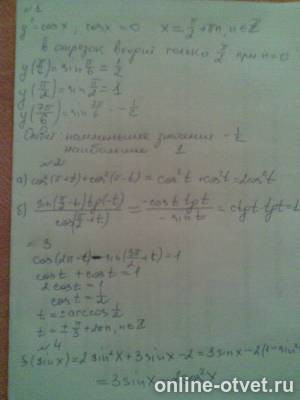 №1
y' = cosx, cosx = 0 x = π/2 + πn, n ∈ Z
в отрезок входит только π/2 при n=0
y(π/6) = sin π/6 = 1/2
y(π/2) = sin π/2 = 1
y(7π/6) = sin 7π/6 = -1/2
Ответ наименьшее значение -1/2
наибольшее 1
№2
= cos²t + cos²t = 2cos²t
б)
= ctgt·tgt = 1
3
cos(2π-t) - sin(3π/2 + t) = 1
cost + cost = 1
2cost = 1
cost = 1/2
t = ± arccos 1/2
t = ± π/3 + 2πn, n ∈ Z
№4
f(sinx) = 2sin²x + 3sinx - 2 = 3sinx - 2(1 - sin²x)
= 3sinx - 2cos²x
online-otvet.ru